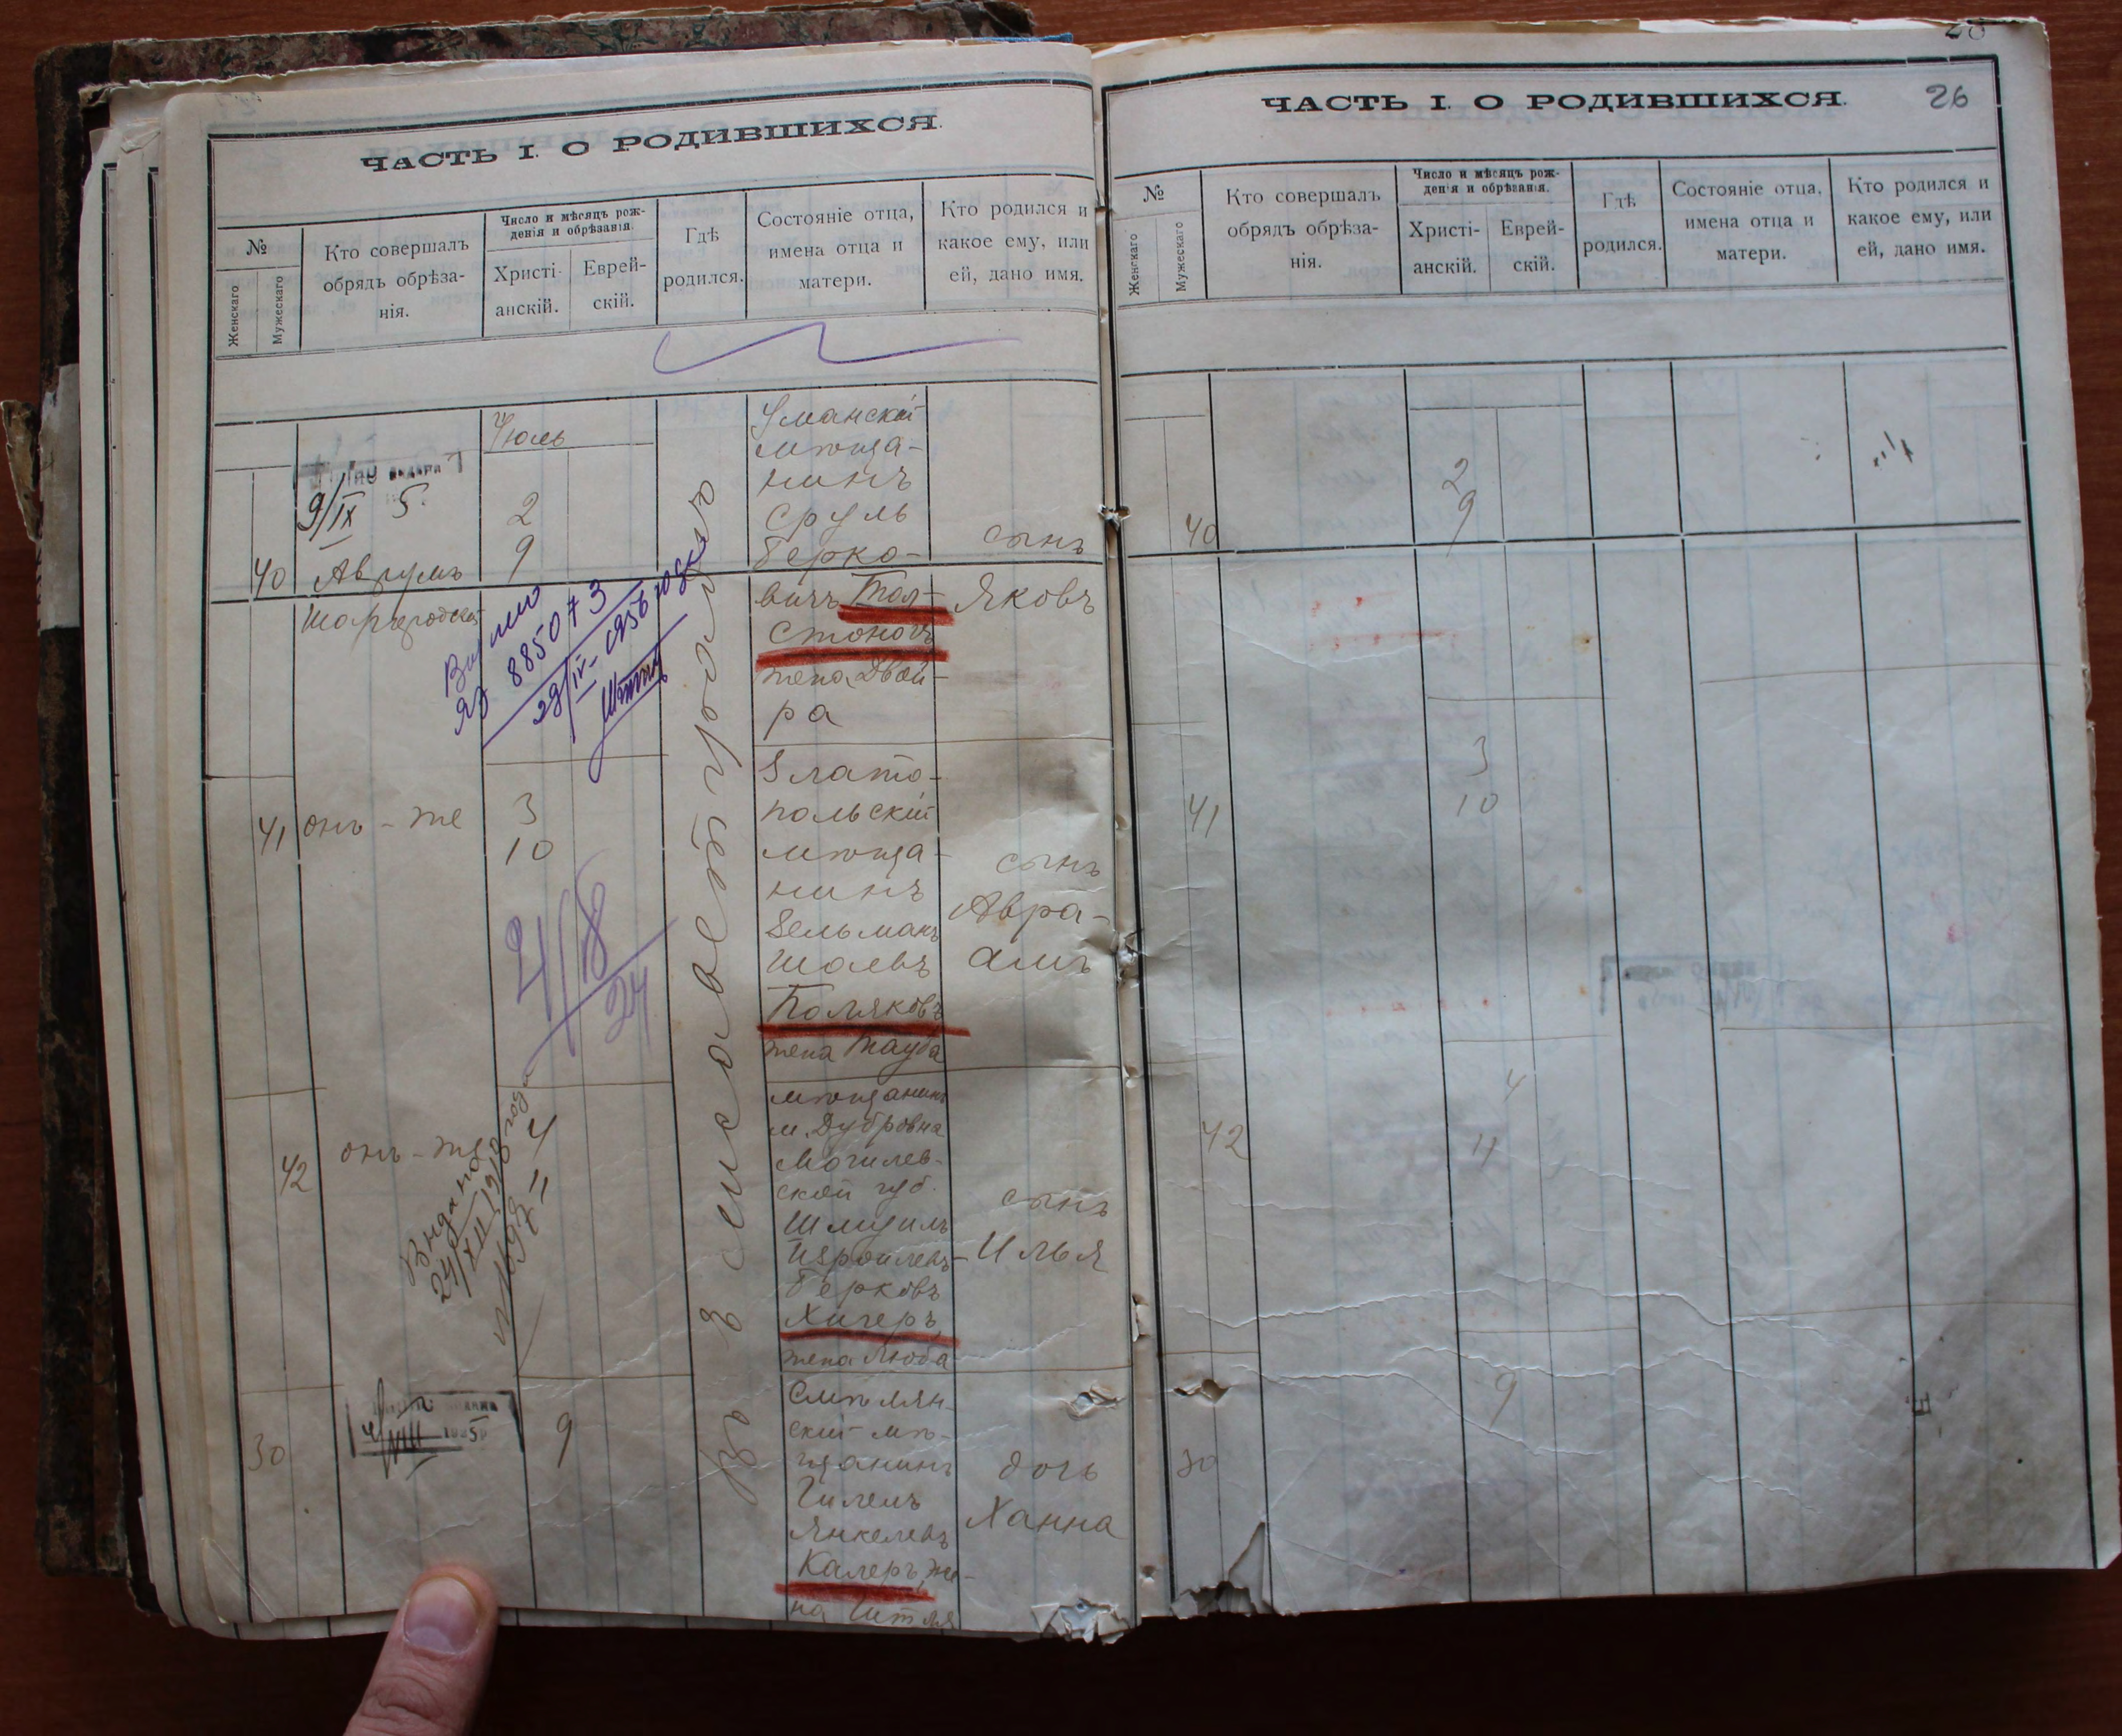 ЧАСТЬ I. О РОДИВШИХСЯ.
№
Женскаго
Мужескаго
Кто совершалъ
обрядъ обрѣза-
нія.
Число и мѣсяцъ рож-
денія и обрѣзанія.
Христі-
анскій.
Еврей-
скій.
Гдѣ
родился.
Состояніе отца,
имена отца и
матери.
Кто родился и
какое ему, или
ей, дано имя.
Июль
9/IX 5
40
Аврумъ
Шаргородскій
2
9
Уманскій
мѣща-
нинъ
Сруль
Берко-
вичъ Тол-
стоногъ
жена Двой-
ра
сынъ
Яковъ
885073
28/IV-1956 года
Въ Елисаветградѣ
41
онъ-же
3
10
Злато-
польскій
мѣща-
нинъ
Зельманъ
Шаевъ
Поляковъ
жена Тауба
сынъ
Авра-
амъ
42
онъ-же
4
11
Выдано
24/XII 1918 года
мѣщанинъ
м. Дубровна
Могилев-
ской губ.
Шмуилъ
Израилевъ-
Берковъ
Хигеръ,
жена Люба
сынъ
Илья
30
9
Смѣлян-
скій мѣ-
щанинъ
Гилелъ
Янкелевъ
Калеръ, же-
на Гитля
дочь
Ханна
ЧАСТЬ I. О РОДИВШИХСЯ.
26
№
Женскаго
Мужескаго
Кто совершалъ
обрядъ обрѣза-
нія.
Число и мѣсяцъ рож-
денія и обрѣзанія.
Христі-
анскій.
Еврей-
скій.
Гдѣ
родился.
Состояніе отца,
имена отца и
матери.
Кто родился и
какое ему, или
ей, дано имя.
40
2
9
41
3
10
42
4
11
30
9